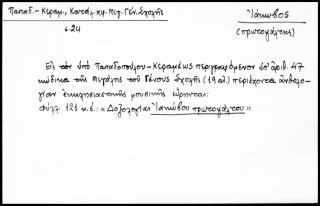 Παπαδ.-Κεραμ., Κατάλ. χφ. Μεγ. Γέν. Σχολῆς
Ἰάκωβος
σ. 24
(πρωτοψάλτης)
Εἰς τὸν ὑπὸ Παπαδοπούλου-Κεραμέως περιγραφόμενον ὑπ' ἀριθ. 47
κώδικα τῆς Μεγάλης τοῦ Γένους Σχολῆς (19 αἰ.) περιέχονται ἀνθολο-
γίαν ἐκκλησιαστικῆς μουσικῆς
φύλλ. 121 κ.ἑ.: «Δοξολογίαι Ἰακώβου πρωτοψάλτου»